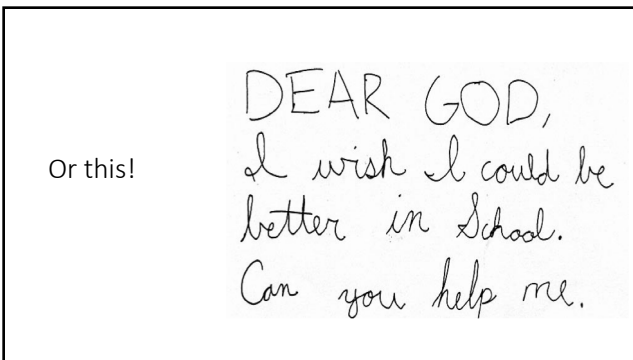 Or this!
DEAR GOD,
I wish I could be
better in School.
Can you help me.